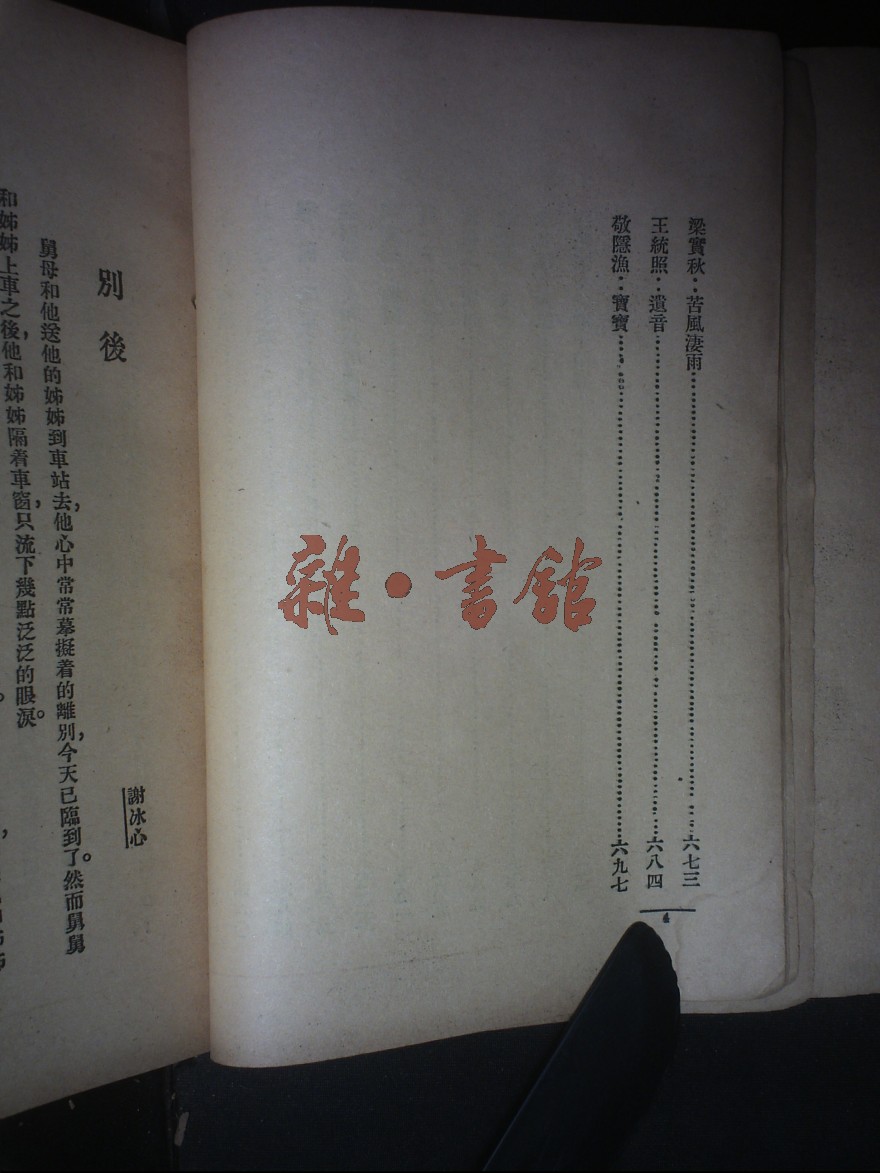 梁實秋：苦風淒雨……六七三
王統照：遺音……六八四
敬隱漁：寶寶……六九七
4
雜·書館
別後
謝冰心
舅母和他送他的姊姊到車站去，他心中常常摹擬着的離別，今天已臨到了。然而舅舅
和姊姊上車之後，他和姊姊隔着車窗，只流下幾點泛泛的眼淚。